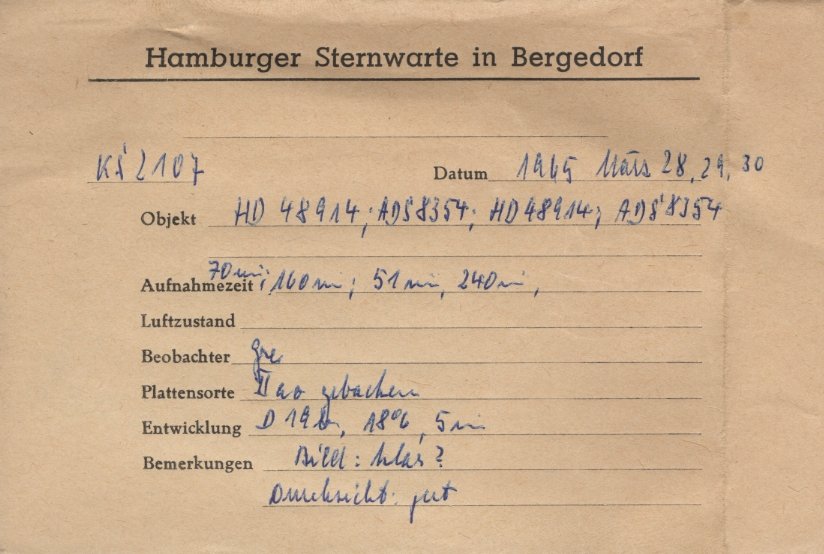 Hamburger Sternwarte in Bergedorf
KS 2107 Datum 1965 März 28, 29, 30
Objekt HD 48914; ADS 8354; HD 48914; ADS 8354
Aufnahmezeit 70 min; 160 min; 51 min, 240 min,
Luftzustand
Beobachter Gre
Plattensorte II a o gebacken
Entwicklung D 19 18°, 5 min
Bemerkungen Bild: klar?
Durchsicht: gut